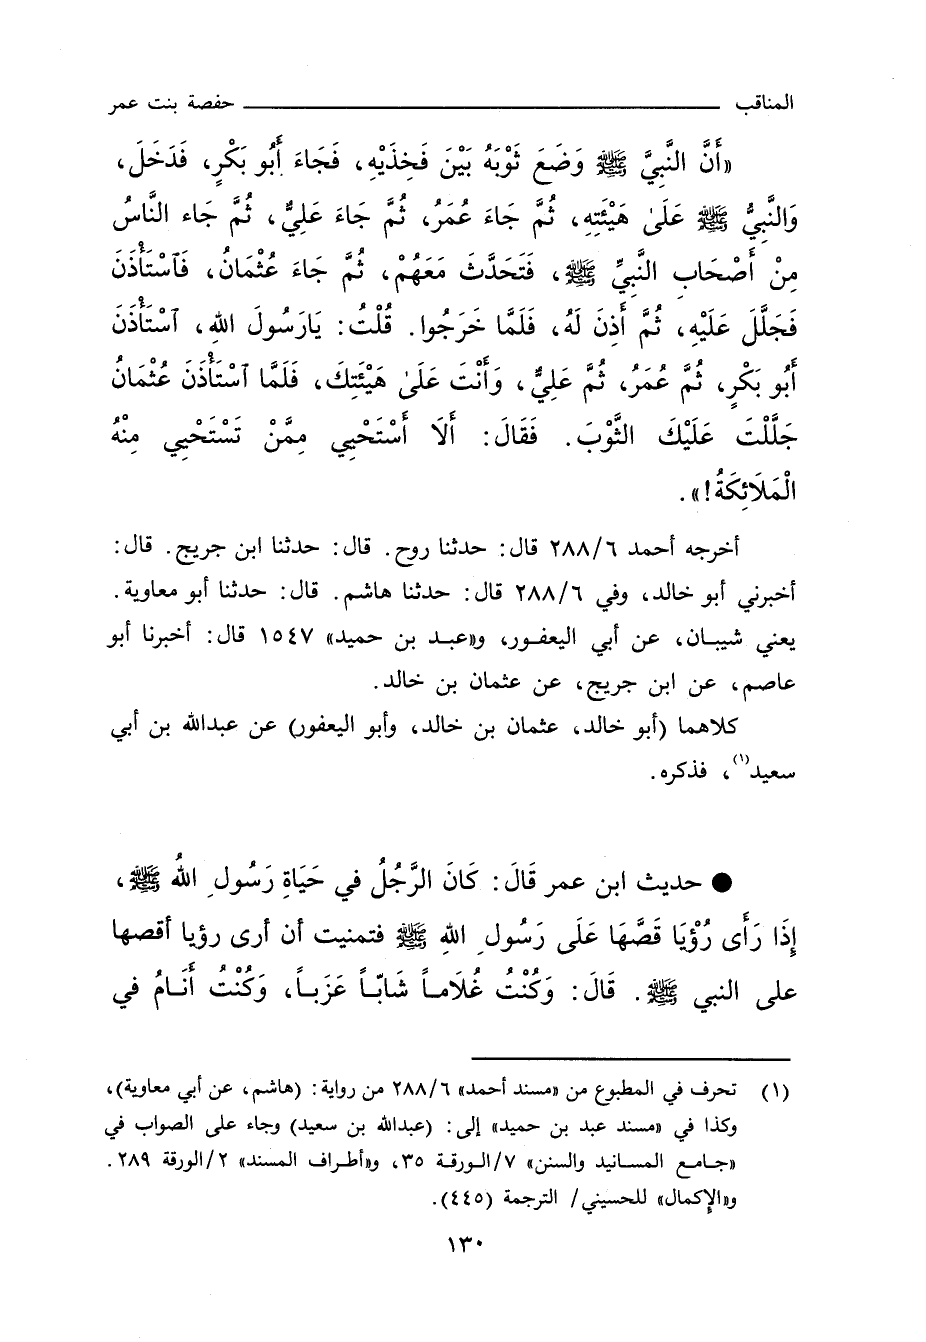 المناقب حفصة بنت عمر
«أَنَّ النَّبِيَّ ﷺ وَضَعَ ثَوْبَهُ بَيْنَ فَخِذَيْهِ، فَجَاءَ أَبُو بَكْرٍ، فَدَخَلَ،
وَالنَّبِيُّ ﷺ عَلَىٰ هَيْئَتِهِ، ثُمَّ جَاءَ عُمَرُ، ثُمَّ جَاءَ عَلِيٌّ، ثُمَّ جَاء النَّاسُ
مِنْ أَصْحَابِ النَّبِيِّ ﷺ، فَتَحَدَّثَ مَعَهُمْ، ثُمَّ جَاءَ عُثْمَانُ، فَٱسْتَأْذَنَ
فَجَلَّلَ عَلَيْهِ، ثُمَّ أَذِنَ لَهُ، فَلَمَّا خَرَجُوا. قُلْتُ: يَارَسُولَ اللهِ، ٱسْتَأْذَنَ
أَبُو بَكْرٍ، ثُمَّ عُمَرُ، ثُمَّ عَلِيٌّ، وَأَنْتَ عَلَىٰ هَيْئَتِكَ، فَلَمَّا ٱسْتَأْذَنَ عُثْمَانُ
جَلَّلْتَ عَلَيْكَ الثَّوْبَ. فَقَالَ: أَلَا أَسْتَحْيِي مِمَّنْ تَسْتَحْيِي مِنْهُ
الْمَلَائِكَةُ!».
أخرجه أحمد ٢٨٨/٦ قال: حدثنا روح. قال: حدثنا ابن جريج. قال:
أخبرني أبو خالد، وفي ٢٨٨/٦ قال: حدثنا هاشم. قال: حدثنا أبو معاوية.
يعني شيبان، عن أبي اليعفور، و«عبد بن حميد» ١٥٤٧ قال: أخبرنا أبو
عاصم، عن ابن جريج، عن عثمان بن خالد.
كلاهما (أبو خالد، عثمان بن خالد، وأبو اليعفور) عن عبدالله بن أبي
سعيد(١)، فذكره.
● حديث ابن عمر قَالَ: كَانَ الرَّجُلُ في حَيَاةِ رَسُولِ اللهُ ﷺ،
إِذَا رَأَى رُؤْيَا قَصَّهَا عَلَى رَسُولِ اللهِ ﷺ فتمنيت أن أرى رؤيا أقصها
على النبي ﷺ. قَالَ: وَكُنْتُ غُلَاماً شَابّاً عَزَباً، وَكُنْتُ أَنَامُ في
(١) تحرف في المطبوع من «مسند أحمد» ٢٨٨/٦ من رواية: (هاشم، عن أبي معاوية)،
وكذا في «مسند عبد بن حميد» إلى: (عبدالله بن سعيد) وجاء على الصواب في
«جامع المسانيد والسنن» ٧/الورقة ٣٥، و«أطراف المسند» ٢/الورقة ٢٨٩.
و«الإكمال» للحسيني/ الترجمة (٤٤٥).
١٣٠